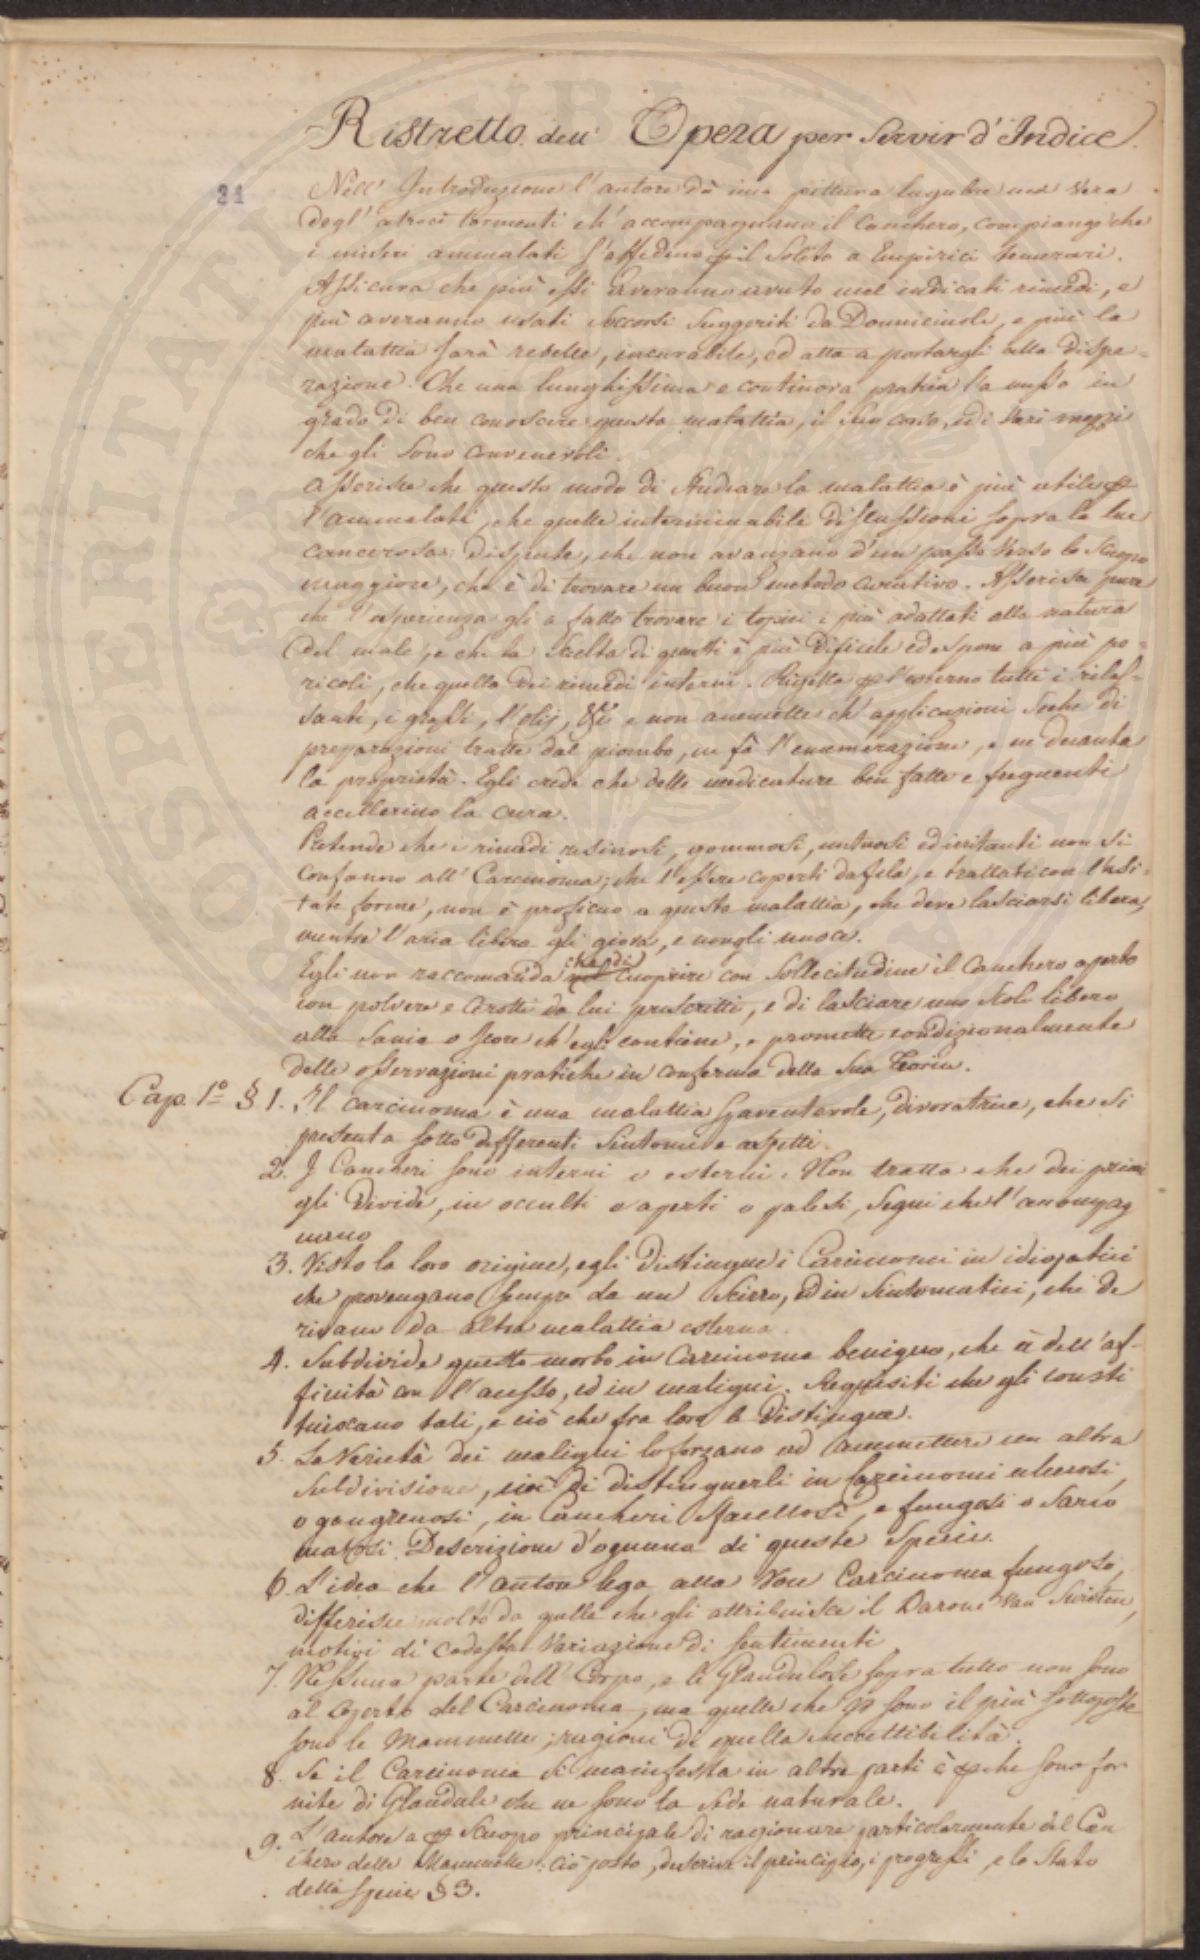 Ristretto dell' Opera per Servir d'Indice.
21
Nell' Introduzione l'autore dà una pittura lugubre ma vera
degl' atroci tormenti ch' accompagnano il Canchero, compiange che
i miseri ammalati s'affidino p il solito a Empirici temerari.
Assicura che più essi averanno avuto mal indicati rimedi, e
più averanno usati soccorsi suggeriti da Donniciuole, e più la
malattia sarà rebelle, incurabile, ed atta a portargli alla dispe-
razione. Che una lunghissima e continova pratica l'a messo in
grado di ben conoscere questa malattia, il suo corso, ed i vari mezzi
che gli sono convenevoli.
Asserisce che questo modo di studiare la malattia è più utile p
l'ammalati, che quelle interminabili discussioni sopra la lue
cancerosa dispute, che non avanzano d'un passo verso lo scuopo
maggiore, che è di trovare un buon metodo curativo. Asserisce pure
che l'esperienza gli a fatto trovare i topici i più adattati alla natura
del male, e che la scelta di questi è più dificile ed espone a più pe-
ricoli, che quella dei rimedi interni. Rigetta p l'esterno tutti i rilas-
santi, i grassi, l'olij, &c e non ammette ch' applicazioni secche di
preparazioni tratte dal piombo, ne fà l'enumerazione, e ne decanta
la proprietà. Egli crede che delle medicature ben fatte e frequenti
accellerino la cura.
Pretende che i rimedi resinosi, gommosi, untuosi ed irritanti non si
confanno all' Carcinoma; che l'essere coperti da fila, e trattati con l'usi-
tate forme, non è proficuo a questa malattia, che deve lasciarsi libera,
mentre l'aria libera gli giova, e non gli nuoce.
Egli non raccomanda che di cuoprire con sollecitudine il Canchero aperto
con polvere e cerotti da lui prescritti, e di lasciare uno scolo libero
alla sanie o icore ch' egli contiene, e promette condizionalmente
delle osservazioni pratiche in conferma della sua Teoria.
Cap. 1° § 1. Il carcinoma è una malattia spaventevole, divoratrice, che si
presenta sotto differenti sintomi e aspetti.
2. I Cancheri sono interni o esterni. Non tratta che dei primi
gli divide, in occulti o aperti o palesi, segni che l'accompag
nano
3. Visto la loro origine, egli distingue i Carcinomi in idiopatici
che provengano sempre da un scirro, ed in sintomatici, che de
rivano da altra malattia esterna.
4. Subdivide questo morbo in Carcinoma benigno, che à dell'af-
finità con l'acesso, ed in maligni. Requisiti che gli consti
tuiscano tali, e ciò che fra loro li distingue.
5. La Varietà dei maligni lo forzano ad ammettere un altra
subdivisione, cioè di distinguerli in Carcinomi ulcerosi,
o gangrenosi, in Cancheri sfacellosi, e fungosi o sarco
matosi. Descrizione d'ognuna di queste specie.
6. L'idea che l'autore lega alla voce Carcinoma fungoso,
differisce molto da quella che gli attribuisce il Barone Van Swieten,
motivi di codesta variazione di sentimenti.
7. Nessuna parte dell' Corpo, e le Glandulose sopra tutto non sono
al coperto del Carcinoma, ma quelle che vi sono il più sottoposte
sono le Mammelle; ragioni di quella suscettibilità.
8. Se il Carcinoma si manifesta in altre parti è p che sono for
nite di Glandule che ne sono la sede naturale.
9. L'autore a p scuopo principale di ragionare particolarmente del Can
chero delle Mammelle: ciò posto, descrive il principio, i progressi, e lo stato
della specie § 3.